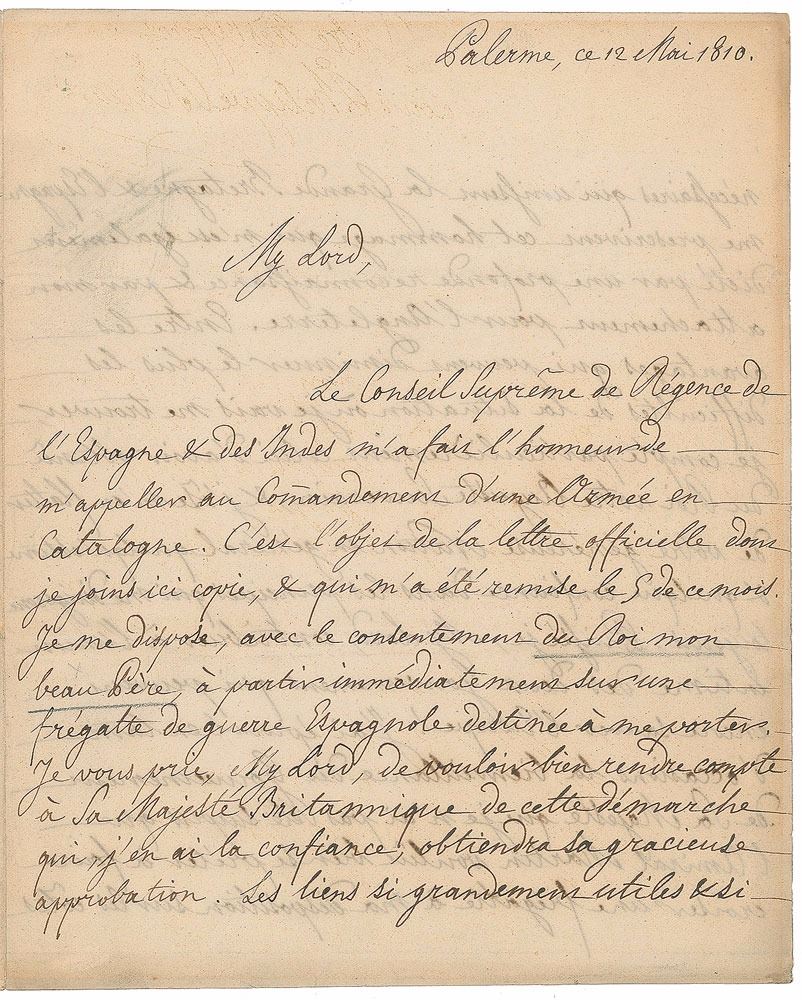 Palerme, ce 12 Mai 1810.
My Lord,
Le Conseil Suprême de Régence de
l'Espagne & des Indes m'a fait l'honneur de
m'appeller au Com̃andement d'une Armée en
Catalogne. C'est l'objet de la lettre officielle dont
je joins ici copie, & qui m'a été remise le 5 de ce mois.
Je me dispose, avec le consentement du Roi mon
beau Père, à partir immédiatement sur une
frégatte de guerre Espagnole destinée à me porter.
Je vous prie, My Lord, de vouloir bien rendre compte
à Sa Majesté Britannique de cette démarche
qui, j'en ai la confiance, obtiendra sa gracieuse
approbation. Les liens si grandement utiles & si